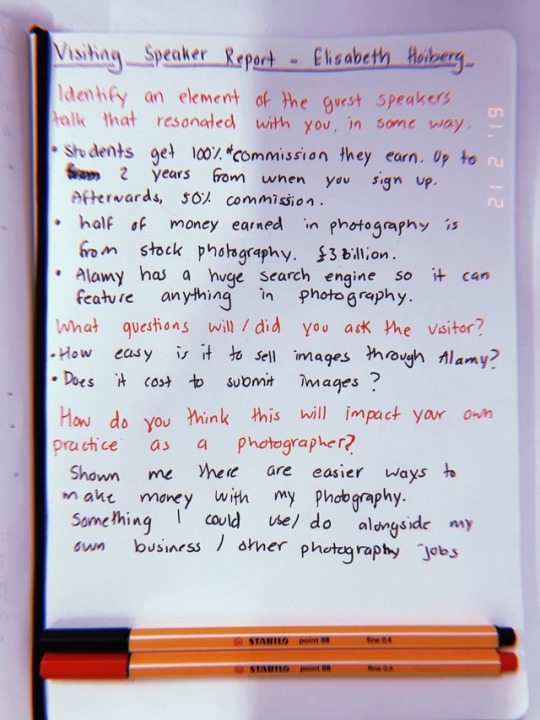 Visiting Speaker Report - Elisabeth Hoiberg
Identify an element of the guest speakers
talk that resonated with you, in some way.
• Students get 100% *commission they earn. Up to
2 years from when you sign up.
Afterwards, 50% commission.
• half of money earned in photography is
from stock photography. £3 Billion.
• Alamy has a huge search engine so it can
feature anything in photography.
What questions will / did you ask the visitor?
• How easy is it to sell images through Alamy?
• Does it cost to submit images?
How do you think this will impact your own
practice as a photographer?
Shown me there are easier ways to
make money with my photography.
Something I could use / do alongside my
own business / other photography jobs
STABILO point 88 fine 0,4
STABILO point 88 fine 0,4